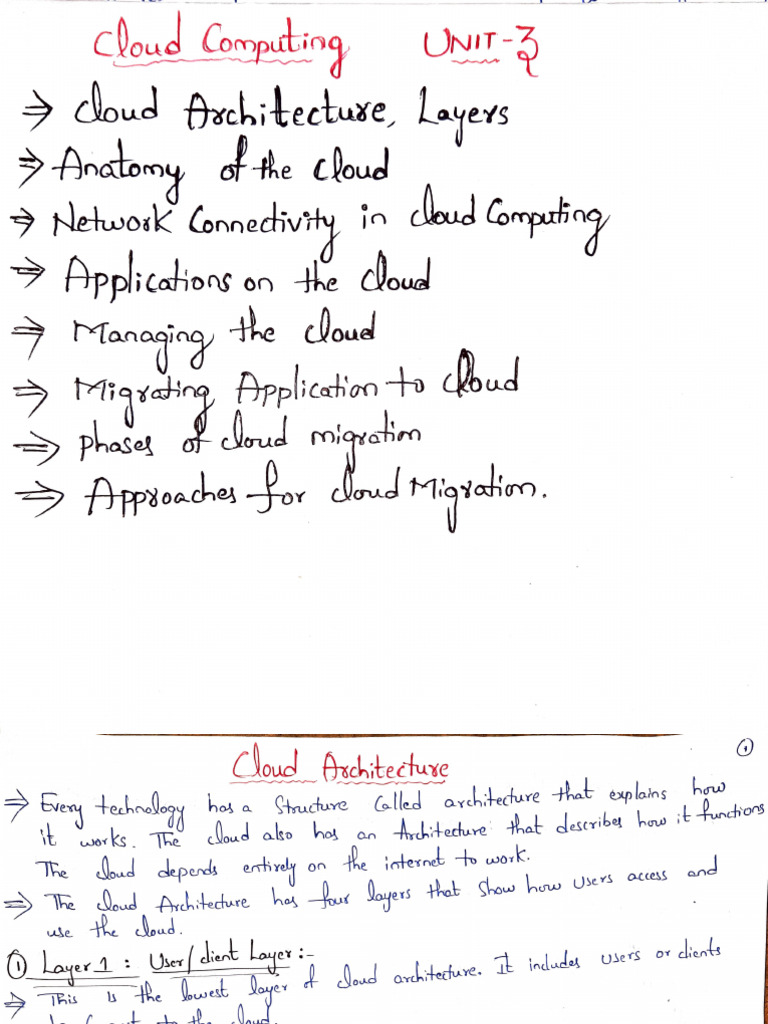 Cloud Computing UNIT-3
⇒ Cloud Architecture, Layers
⇒ Anatomy of the Cloud
⇒ Network Connectivity in Cloud Computing
⇒ Applications on the Cloud
⇒ Managing the Cloud
⇒ Migrating Application to Cloud
⇒ phases of cloud migration
⇒ Approaches for cloud Migration.
①
Cloud Architecture
⇒ Every technology has a Structure Called architecture that explains how
it works. The cloud also has an Architecture that describes how it functions
The cloud depends entirely on the internet to work.
⇒ The cloud Architecture has four layers that show how users access and
use the cloud.
① Layer 1 : User/client Layer :-
⇒ This is the lowest layer of cloud architecture. It includes users or clients
to the cloud.